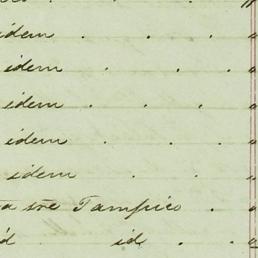 idem . . . "
idem . . . "
idem . . . "
idem . . . "
idem . . "
a tre Tampico . "
id id . . "